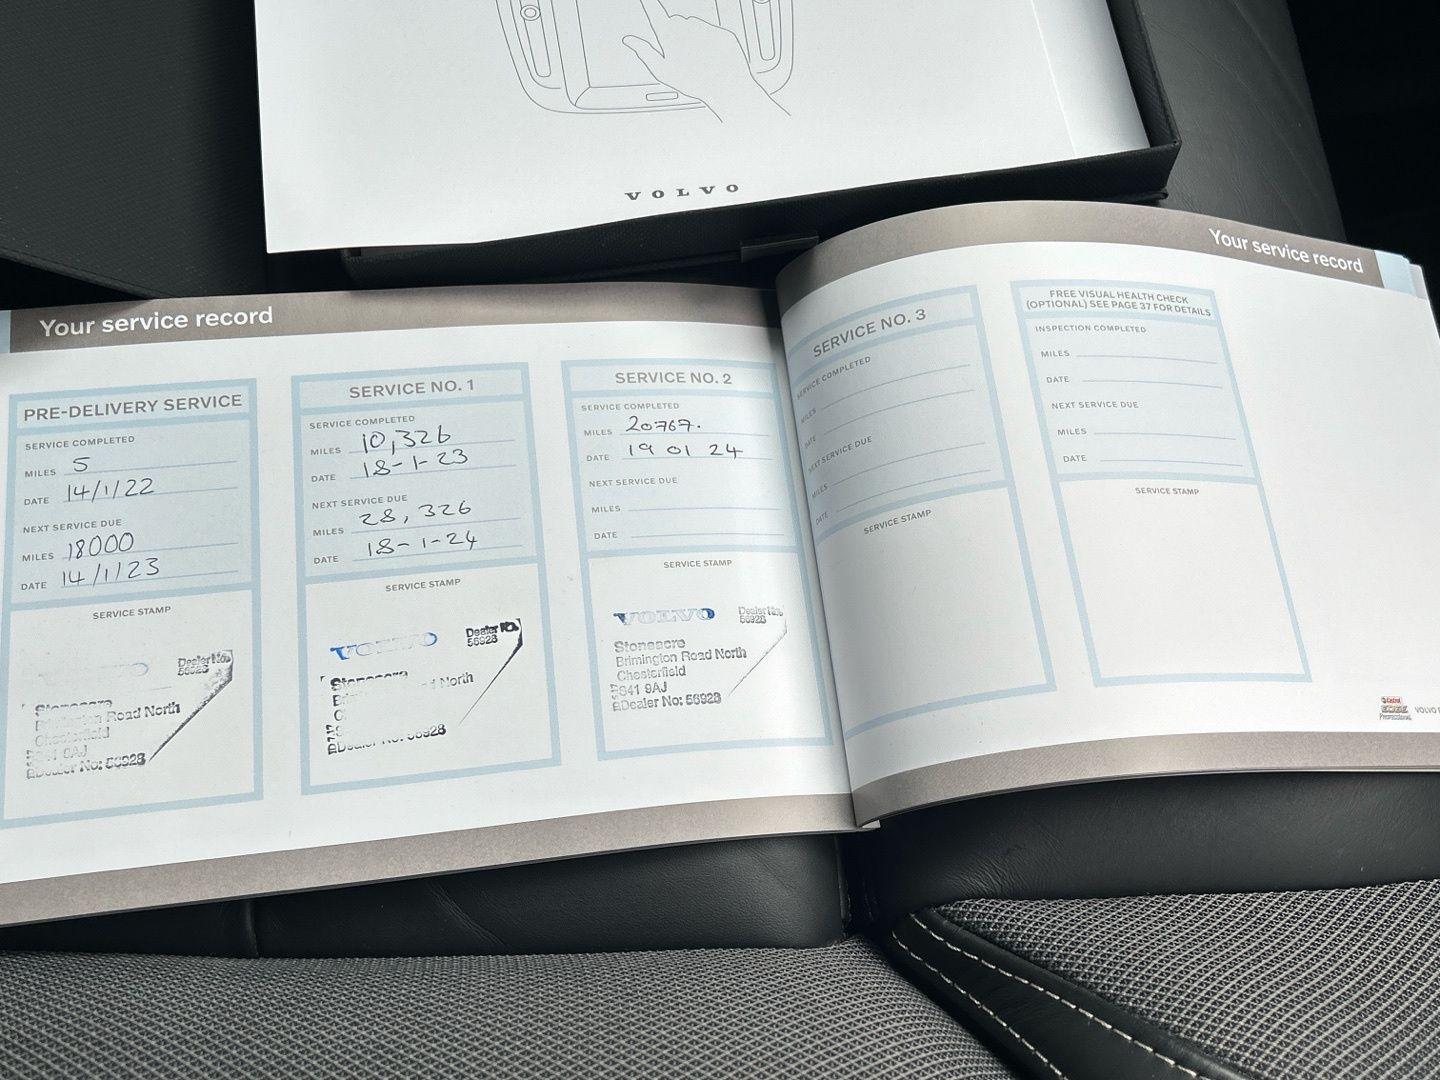 VOLVO
Your service record
PRE-DELIVERY SERVICE
SERVICE COMPLETED
MILES 5
DATE 14/1/22
NEXT SERVICE DUE
MILES 18000
DATE 14/1/23
SERVICE STAMP
Dealer No.
56928
Stoneacre
Brimington Road North
Chesterfield
Dealer No: 56928
SERVICE NO. 1
SERVICE COMPLETED
MILES 10,326
DATE 18-1-23
NEXT SERVICE DUE
MILES 28,326
DATE 18-1-24
SERVICE STAMP
VOLVO
Dealer No.
56928
Stoneacre
North
Dealer No: 56928
SERVICE NO. 2
SERVICE COMPLETED
MILES 20767.
DATE 19 01 24
NEXT SERVICE DUE
MILES
DATE
SERVICE STAMP
VOLVO
Dealer No.
56928
Stoneacre
Brimington Road North
Chesterfield
S41 9AJ
Dealer No: 56928
Your service record
SERVICE NO. 3
SERVICE COMPLETED
MILES
DATE
NEXT SERVICE DUE
MILES
DATE
SERVICE STAMP
FREE VISUAL HEALTH CHECK
(OPTIONAL) SEE PAGE 37 FOR DETAILS
INSPECTION COMPLETED
MILES
DATE
NEXT SERVICE DUE
MILES
DATE
SERVICE STAMP
Castrol
EDGE
Professional
VOLVO